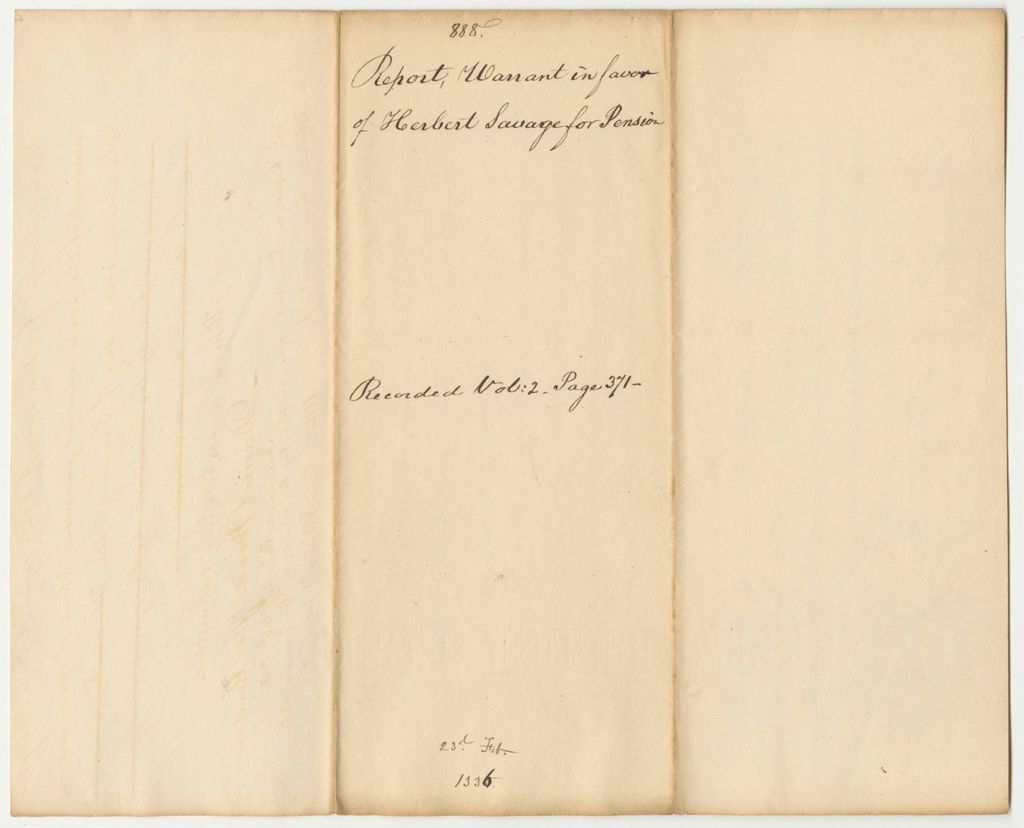 888.
Report, Warrant in favor
of Herbert Savage for Pension
Recorded Vol: 2. Page 371-
23d. Feb.
1836